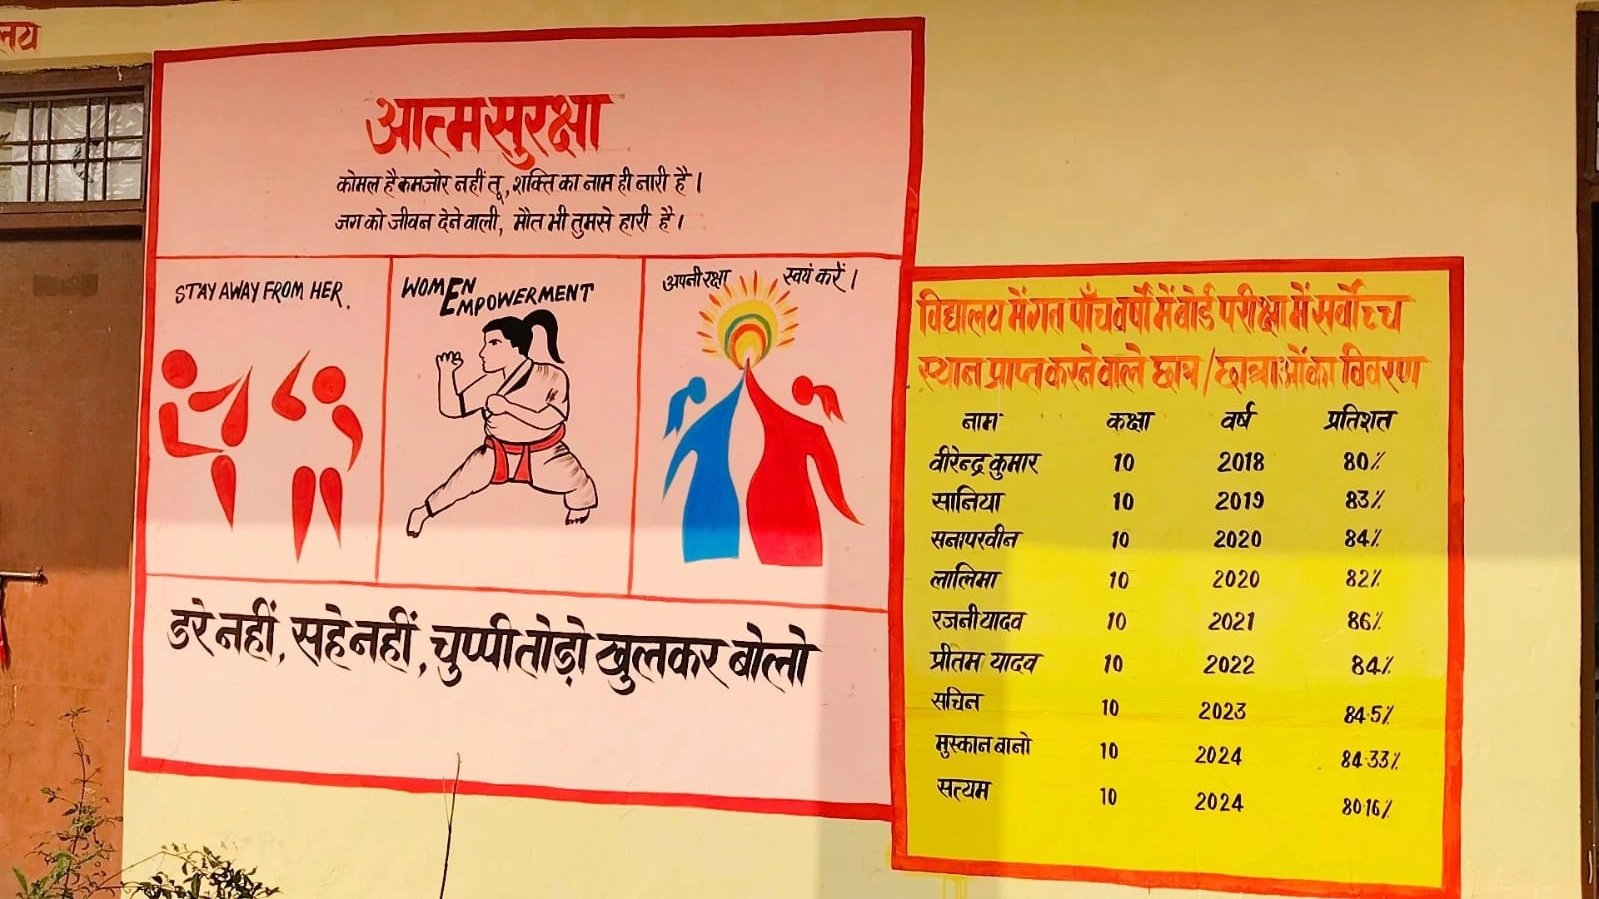 लय
आत्मसुरक्षा
कोमल है कमजोर नहीं तू, शक्ति का नाम ही नारी है।
जग को जीवन देने वाली, मौत भी तुमसे हारी है।
STAY AWAY FROM HER.
WOMEN EMPOWERMENT
अपनी रक्षा स्वयं करें।
डरे नहीं, सहे नहीं, चुप्पी तोड़ो खुलकर बोलो
विद्यालय में गत पाँच वर्षों में बोर्ड परीक्षा में सर्वोच्च
स्थान प्राप्त करने वाले छात्र/छात्राओं का विवरण
नाम कक्षा वर्ष प्रतिशत
वीरेन्द्र कुमार 10 2018 80%
सानिया 10 2019 83%
सनापरवीन 10 2020 84%
लालिमा 10 2020 82%
रजनी यादव 10 2021 86%
प्रीतम यादव 10 2022 84%
सचिन 10 2023 84.5%
मुस्कान बानो 10 2024 84.33%
सत्यम 10 2024 80.16%